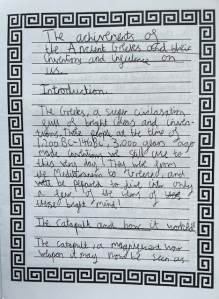 The achivements of
the Ancient Greeks and their
inventions and influence on
us.
Introduction
The Greeks, a super civilisation
full of bright ideas and inven-
tions. These people at the time of
1200BC-146BC, 3,000 years ago
made inventions we still use to
this very day! This
Mediterranean to Greece, and
be prepared to dive into only
a few of the ideas of
these bright minds!
The Catapult and how it works
The Catapult, a magnificent war
weapon it may now be seen as